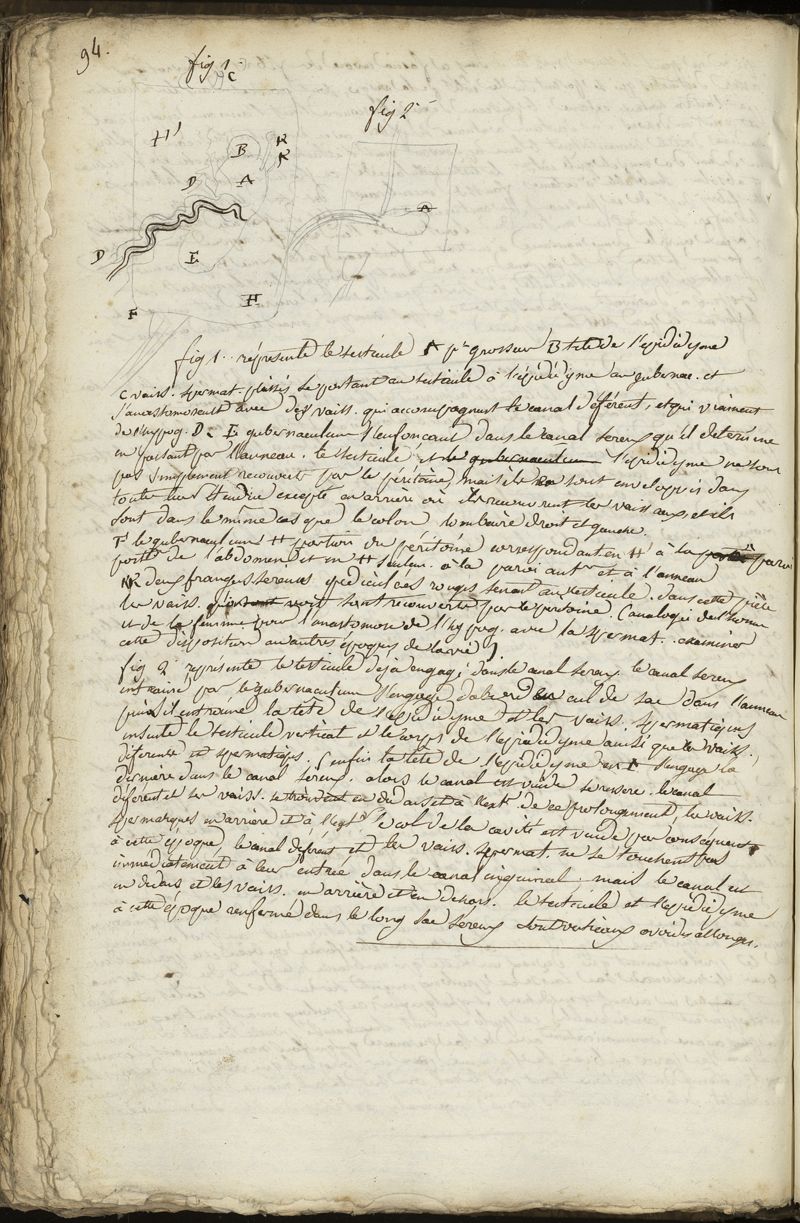 94.
fig 1.
C
fig 2
H'
B
K
K
D
A
A
D
E
F
H
fig 1. représente le testicule A pr grosseur B tête de l'epididyme
C vaiss. spermat. plissés se portant au testicule à l'épididyme au gubernac. et
s'anastomosent avec des vaiss. qui accompagnent le canal déférent, et qui viennent
de l'hypog. D. E gubernaculum s'enfoncant dans le canal sereux qu'il determine
en passant par l'anneau. le testicule et le gubernaculum l'epididyme ne sont
pas simplement recouverts par le péritoine, mais ils sont enveloppés dans
toute leur étendue excepté en arriere où ils recouvrent les vaisseaux et ils
sont dans le même cas que le colon lombaire droit et gauche.
F le gubernaculum H portion du péritoine correspondant en H' à la paroi
postre de l'abdomen et en H seulem. à la paroi antre et à l'anneau
K deux franges sereuses rouges tenant au testicule. dans cette
les vaiss. sont recouverts par le peritoine. (analogie de l'homme
et de la femme pour l'anastomose de l'hypog. avec la spermat. examiner
cette disposition aux autres époques de la vie)
fig 2 représente le testicule déjà engagé dans le canal sereux. le canal sereux
entrainé par le gubernaculum s'engage d'abord en cul de sac dans l'anneau
puis il entraine la tête de l'epididyme et les vaiss. spermatiques
ensuite le testicule vertical et le corps de l'epididyme ainsi que les vaiss.
diferents et spermatiqs. enfin la tête de l'epididyme en A s'engage la
derniere dans le canal sereux. alors le canal est vuide se ressere. le canal
diferent et ses vaiss. se trouvent en dedans et à l'extr de ce prolongement, les vaiss.
spermatiques en arriere et à l'extr le col de la cavité est vuide par conséquent
à cette époque le canal deferent et les vaiss. spermat. ne se touchent pas
immédiatement à leur entrée dans le canal inguinal. mais le canal est
en dedans et les vaiss. en arrière et en dehors. le testicule et l'epididyme
à cette époque renfermé dans le long sac sereux sont verticaux ovoides allongés.